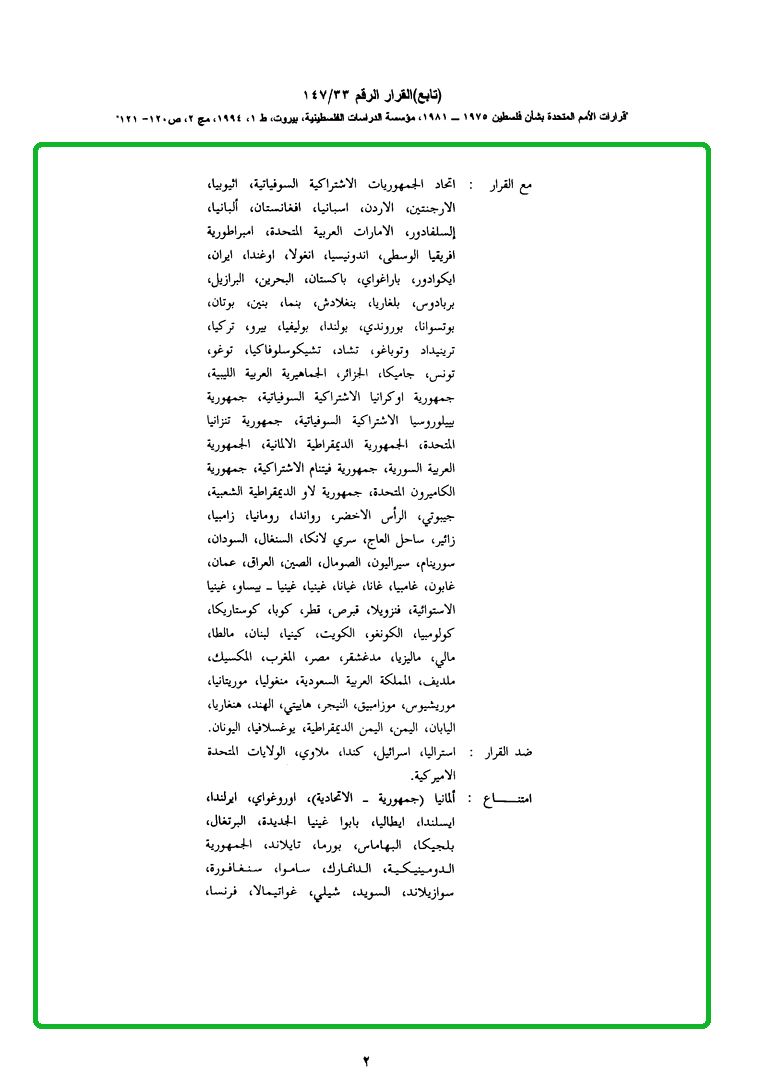 (تابع)القرار الرقم ١٤٧/٣٣
"قرارات الأمم المتحدة بشأن فلسطين ١٩٧٥ ــ ١٩٨١، مؤسسة الدراسات الفلسطينية، بيروت، ط ١، ١٩٩٤، مج ٢، ص١٢٠- ١٢١"
مع القرار : اتحاد الجمهوريات الاشتراكية السوفياتية، اثيوبيا،
الارجنتين، الاردن، اسبانيا، افغانستان، ألبانيا،
إلسلفادور، الامارات العربية المتحدة، امبراطورية
افريقيا الوسطى، اندونيسيا، انغولا، اوغندا، ايران،
ايكوادور، باراغواي، باكستان، البحرين، البرازيل،
بربادوس، بلغاريا، بنغلادش، بنما، بنين، بوتان،
بوتسوانا، بوروندي، بولندا، بوليفيا، بيرو، تركيا،
ترينيداد وتوباغو، تشاد، تشيكوسلوفاكيا، توغو،
تونس، جاميكا، الجزائر، الجماهيرية العربية الليبية،
جمهورية اوكرانيا الاشتراكية السوفياتية، جمهورية
بييلوروسيا الاشتراكية السوفياتية، جمهورية تنزانيا
المتحدة، الجمهورية الديمقراطية الالمانية، الجمهورية
العربية السورية، جمهورية فيتنام الاشتراكية، جمهورية
الكاميرون المتحدة، جمهورية لاو الديمقراطية الشعبية،
جيبوتي، الرأس الاخضر، رواندا، رومانيا، زامبيا،
زائير، ساحل العاج، سري لانكا، السنغال، السودان،
سورينام، سيراليون، الصومال، الصين، العراق، عمان،
غابون، غامبيا، غانا، غيانا، غينيا، غينيا ــ بيساو، غينيا
الاستوائية، فنزويلا، قبرص، قطر، كوبا، كوستاريكا،
كولومبيا، الكونغو، الكويت، كينيا، لبنان، مالطا،
مالي، ماليزيا، مدغشقر، مصر، المغرب، المكسيك،
ملديف، المملكة العربية السعودية، منغوليا، موريتانيا،
موريشيوس، موزامبيق، النيجر، هاييتي، الهند، هنغاريا،
اليابان، اليمن، اليمن الديمقراطية، يوغسلافيا، اليونان.
ضد القرار : استراليا، اسرائيل، كندا، ملاوي، الولايات المتحدة
الاميركية.
امتنــــاع : ألمانيا (جمهورية ــ الاتحادية)، اوروغواي، ايرلندا،
ايسلندا، ايطاليا، بابوا غينيا الجديدة، البرتغال،
بلجيكا، البهاماس، بورما، تايلاند، الجمهورية
الدومينيكية، الدانمارك، ساموا، سنغافورة،
سوازيلاند، السويد، شيلي، غواتيمالا، فرنسا،
٢